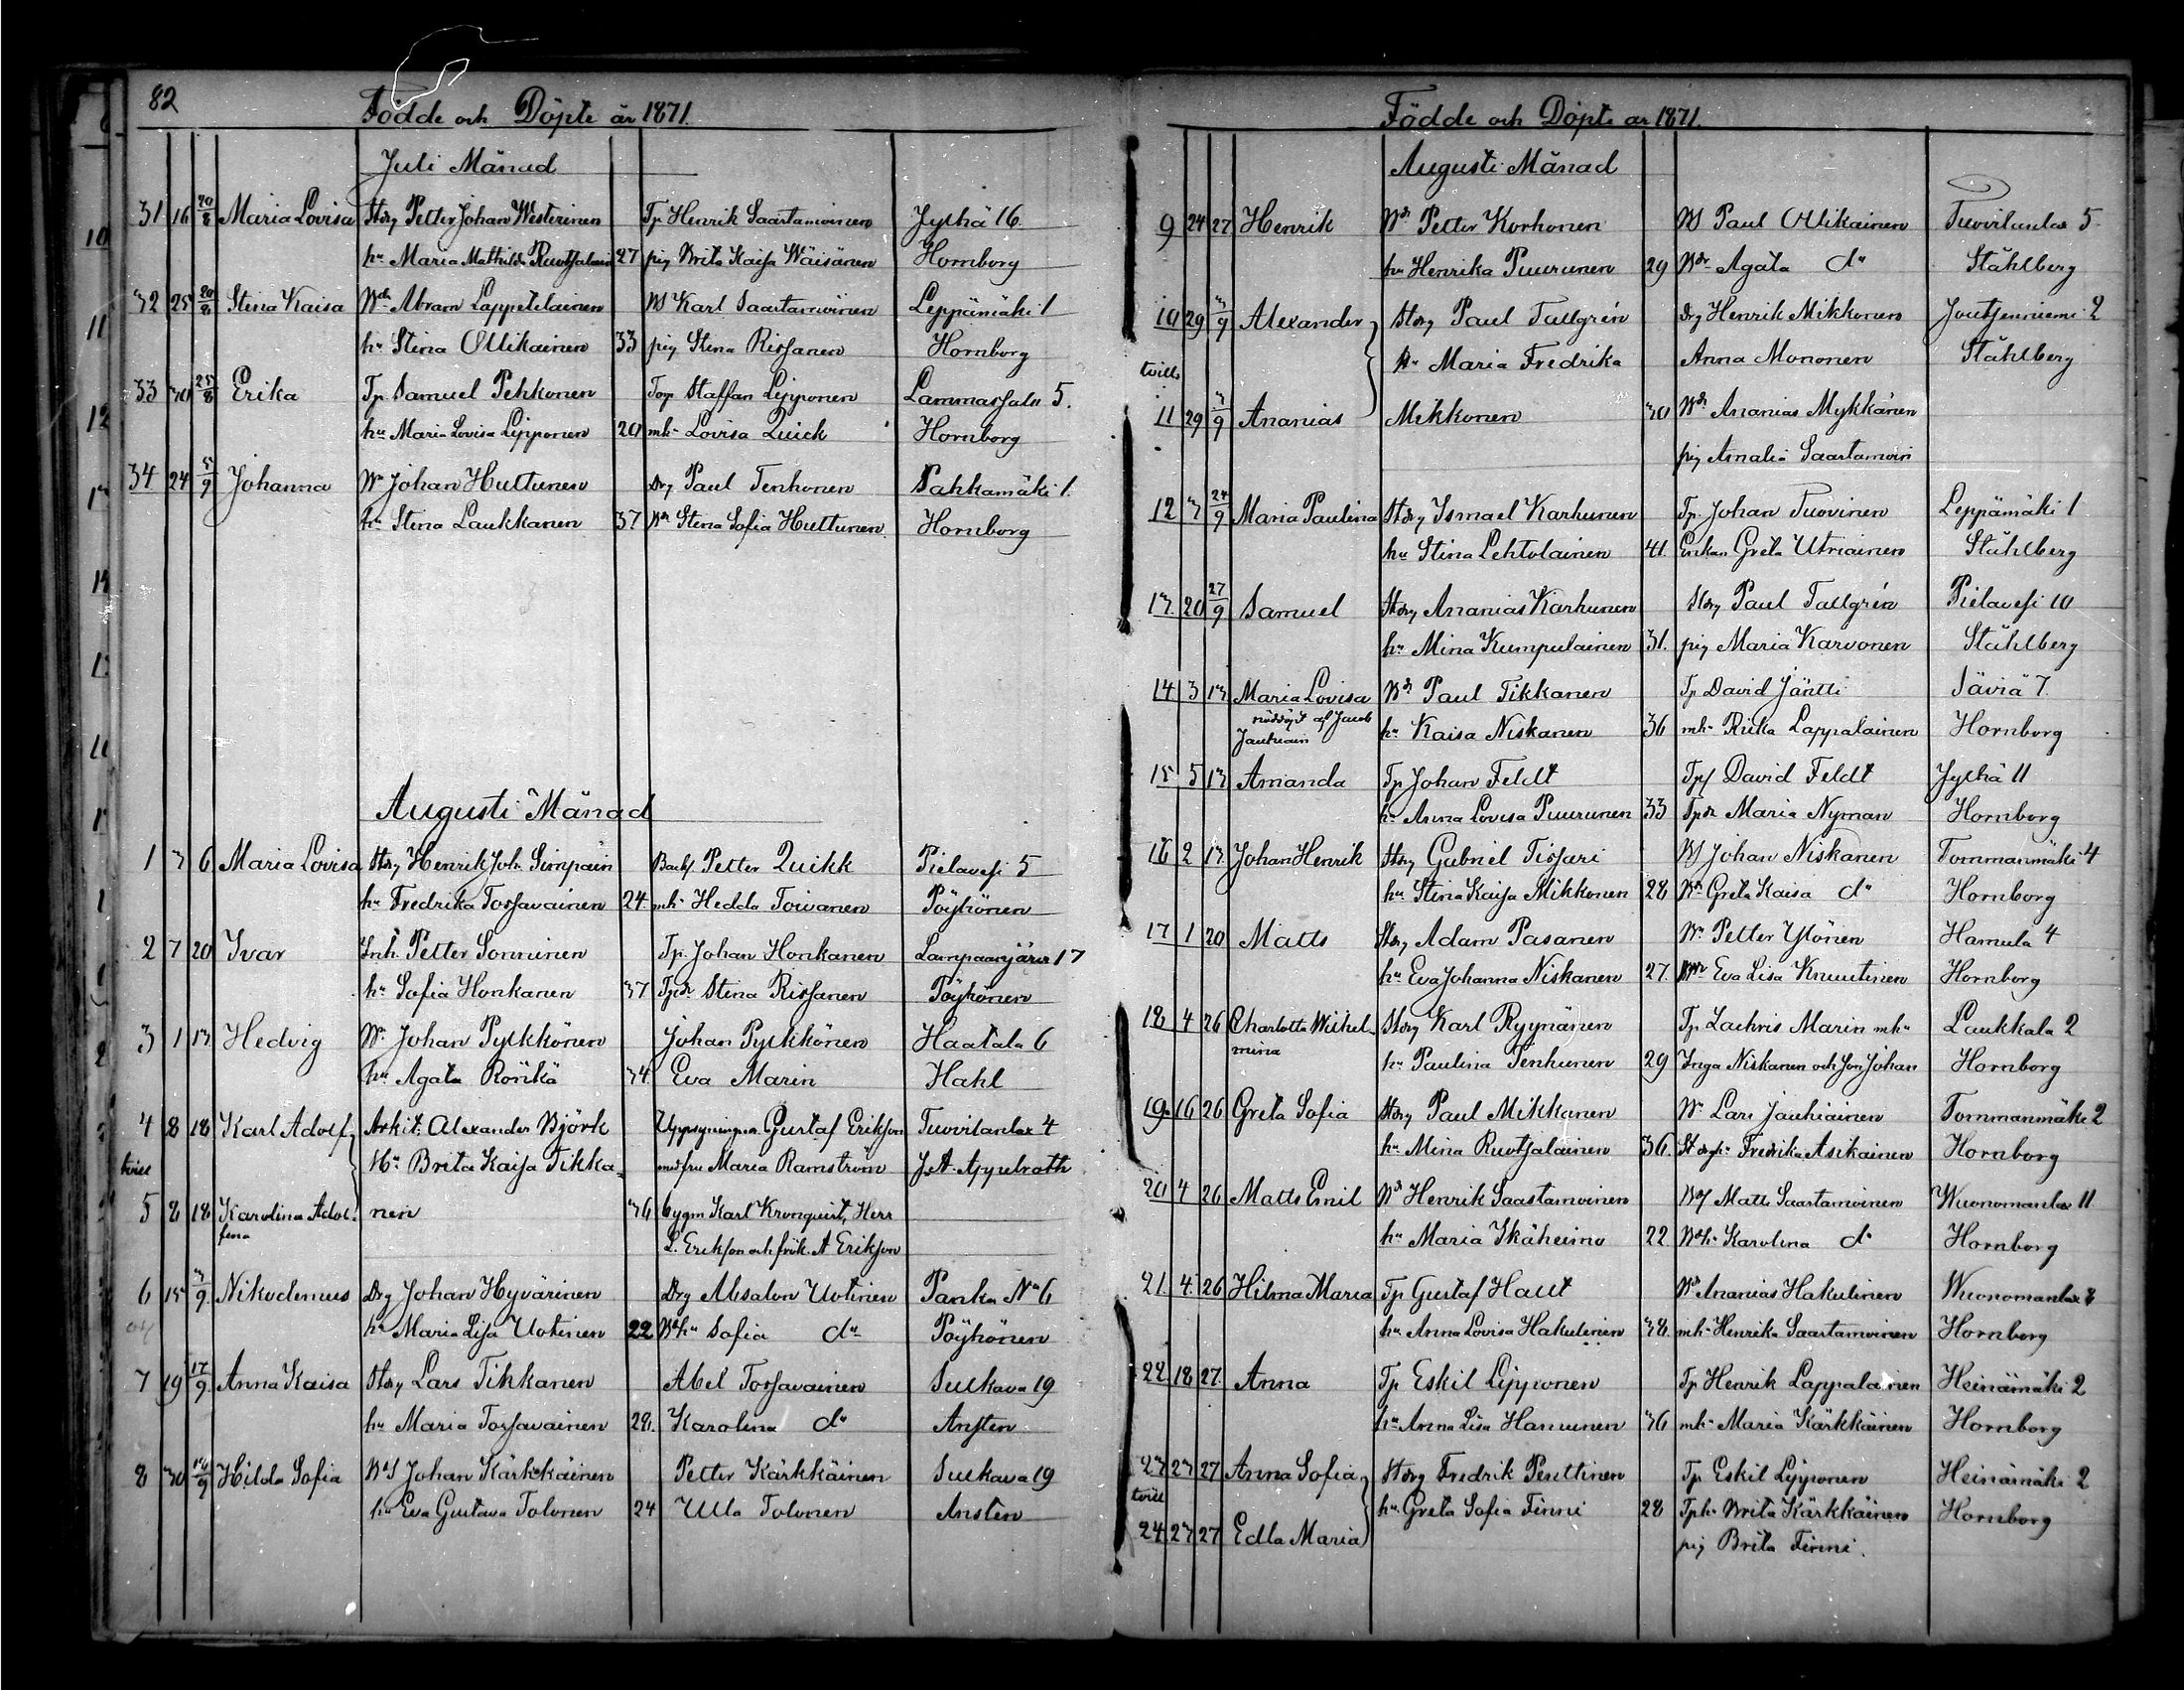 82
Födde och Döpte år 1871.
Juli Månad
31 16 20/8 Maria Lovisa Stdrg Petter Johan Westerinen Tp. Henrik Saastamoinen Jylhä 16.
hu Maria Mathilda Ruotsalain 27 pig Brita Kaisa Wäisänen Hornborg
32 25 20/8 Stina Kaisa Bdr Abram Lappetelainen BS Karl Saastamoinen Leppämäki 1
hu Stina Ollikainen 33 pig Stina Rissanen Hornborg
33 30 25/8 Erika Tp. Samuel Pehkonen Torp Staffan Lipponen Lammassalo 5.
hu Maria Lovisa Lipponen 20 mh Lovisa Quick Hornborg
34 24 5/9 Johanna Bn Johan Huttunen Drg Paul Tenhonen Sahkamäki 1.
hu Stina Laukkanen 37 Bdr Stina Sofia Huttunen Hornborg
Augusti Månad
1 3 6 Maria Lovisa Stdrg Henrik Joh. Simpain Petter Quikk Pielavesi 5
hu Fredrika Tossavainen 24. mh Hedda Toivanen Pöyhönen
2 7 20 Ivar Inh. Petter Sonninen Tp. Johan Honkanen Lampaanjärvi 17
hu Sofia Honkanen 37 Tpdr Stina Rissanen Pöyhönen
3 1 13 Hedvig Bn Johan Pylkkönen Johan Pylkkönen Haatala 6
hu Agata Rönkä 34 Eva Marin Hahl
4 8 18 Karl Adolf Arkit. Alexander Björk Uppsyningsm. Gustaf Erikson Tuovilanlax 4
tvill Hu Brita Kaisa Tikka= med fru Maria Ramström J. A. Appelroth
5 8 18 Karolina Adol- nen 36 bygm Karl Kronquist, Herr
fina L. Erikson och frök. A Erikson
6 15 3/9 Nikodemus Drg Johan Hyvärinen Drg Absalon Uotinen Panka No 6
hu Maria Lisa Uotinen 22 Bdhu Sofia do Pöyhönen
7 19 17/9 Anna Kaisa Stdrg Lars Tikkanen Abel Tossavainen Sulkava 19
hu Maria Tossavainen 28. Karolina do Ansten
8 30 Hilda Sofia BS Johan Kärkkäinen Petter Kärkkäinen Sulkava 19
hu Eva Gustava Tolonen 24 Ulla Tolonen Ansten
Födde och Döpte år 1871.
Augusti Månad
9 24 27 Henrik Bdr Petter Korhonen BS Paul Ollikainen Tuovilanlax 5
hu Henrika Puurunen 29 Bdr Agata do Ståhlberg
10 29 3/9 Alexander Stdrg Paul Tallgrén Drg Henrik Mikkonen Joutsenniemi 2
tvill. Hu Maria Fredrika Anna Mononen Ståhlberg
11 29 3/9 Ananias Mikkonen 30 Bdr Ananias Mykkänen
pig Amalia Saastamoin
12 3 24/9 Maria Paulina Stdrg Ismael Karhunen Tp. Johan Tuovinen Leppämäki 1
hu Stina Lehtolainen 41. Enkan Greta Utriainen Ståhlberg
13. 20 27/9 Samuel Stdrg Ananias Karhunen Stdrg Paul Tallgrén Pielavesi 10
hu Mina Kumpulainen 31. pig Maria Karvonen Ståhlberg
14 3 13 Maria Lovisa Bdr Paul Tikkanen Tp David Jäntti Säviä 7.
nöddöpt af Jacob
Jauhiain hu Kaisa Niskanen 36 mh Riika Lappalainen Hornborg
15 5 13 Amanda Tp Johan Feldt Tps David Feldt Jylhä 11
hu Anna Lovisa Puurunen 33 Tpdr Maria Nyman Hornborg
16 2 13 Johan Henrik Stdrg Gabriel Tissari BS Johan Niskanen Tommanmäki 4
hu Stina Kaisa Mikkonen 28 Bdr Greta Kaisa do Hornborg
17 1 20 Matts Stdrg Adam Pasanen Bn Petter Ylönen Hamula 4
hu Eva Johanna Niskanen 27. Eva Lisa Knuutinen Hornborg
18 4 26 Charlotta Wilhel Stdrg Karl Ryynänen Tp Zachris Marin mhu Laukkala 2
mina hu Paulina Penhunen 29 Inga Niskanen och Jon Johan Hornborg
19. 16 26 Greta Sofia Stdrg Paul Mikkanen Bn Lars Jauhiainen Tommanmäki 2
hu Mina Ruotsalainen 36. Stdrghu Fredrika Asikainen Hornborg
20 4 26 Matts Emil Bdr Henrik Saastamoinen BS Matts Saastamoinen Wuonomanlax 11
hu Maria Ikäheimo 22. Bdhu Karolina do Hornborg
21. 4. 26 Hilma Maria Tp Gustaf Haut Bdr Ananias Hakulinen Wuonomanlax 8
hu Anna Lovisa Hakulinen 38. mh Henrika Saastamoinen Hornborg
22 18 27. Anna Tp Eskil Lipponen Tp Henrik Lappalainen Heinämäki 2
hu Anna Lisa Hanunen 36 mh Maria Kärkkäinen Hornborg
23 23 27 Anna Sofia Stdrg Fredrik Penttinen Tp Eskil Lipponen Heinämäki 2
tvill hu Greta Sofia Finni 28 Tphu Brita Kärkkäinen Hornborg
24 23 27 Edla Maria pig Brita Finni.
10
11
12